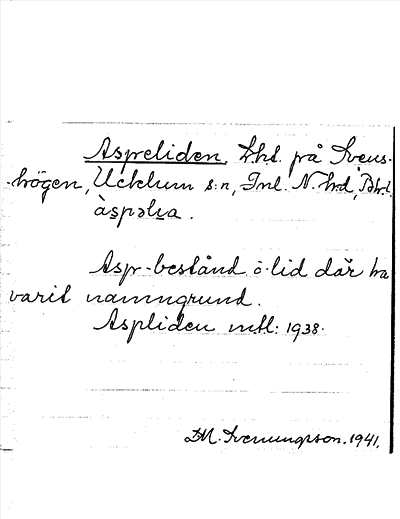 Aspeliden, lht. på Svens-
högen, Ucklum s:n, Inl. N. hd, Bhl.
àspəlia.
Asp-bestånd o. lid där ha
varit namngrund.
Aspliden mtl: 1938.
Svenungsson. 1941.